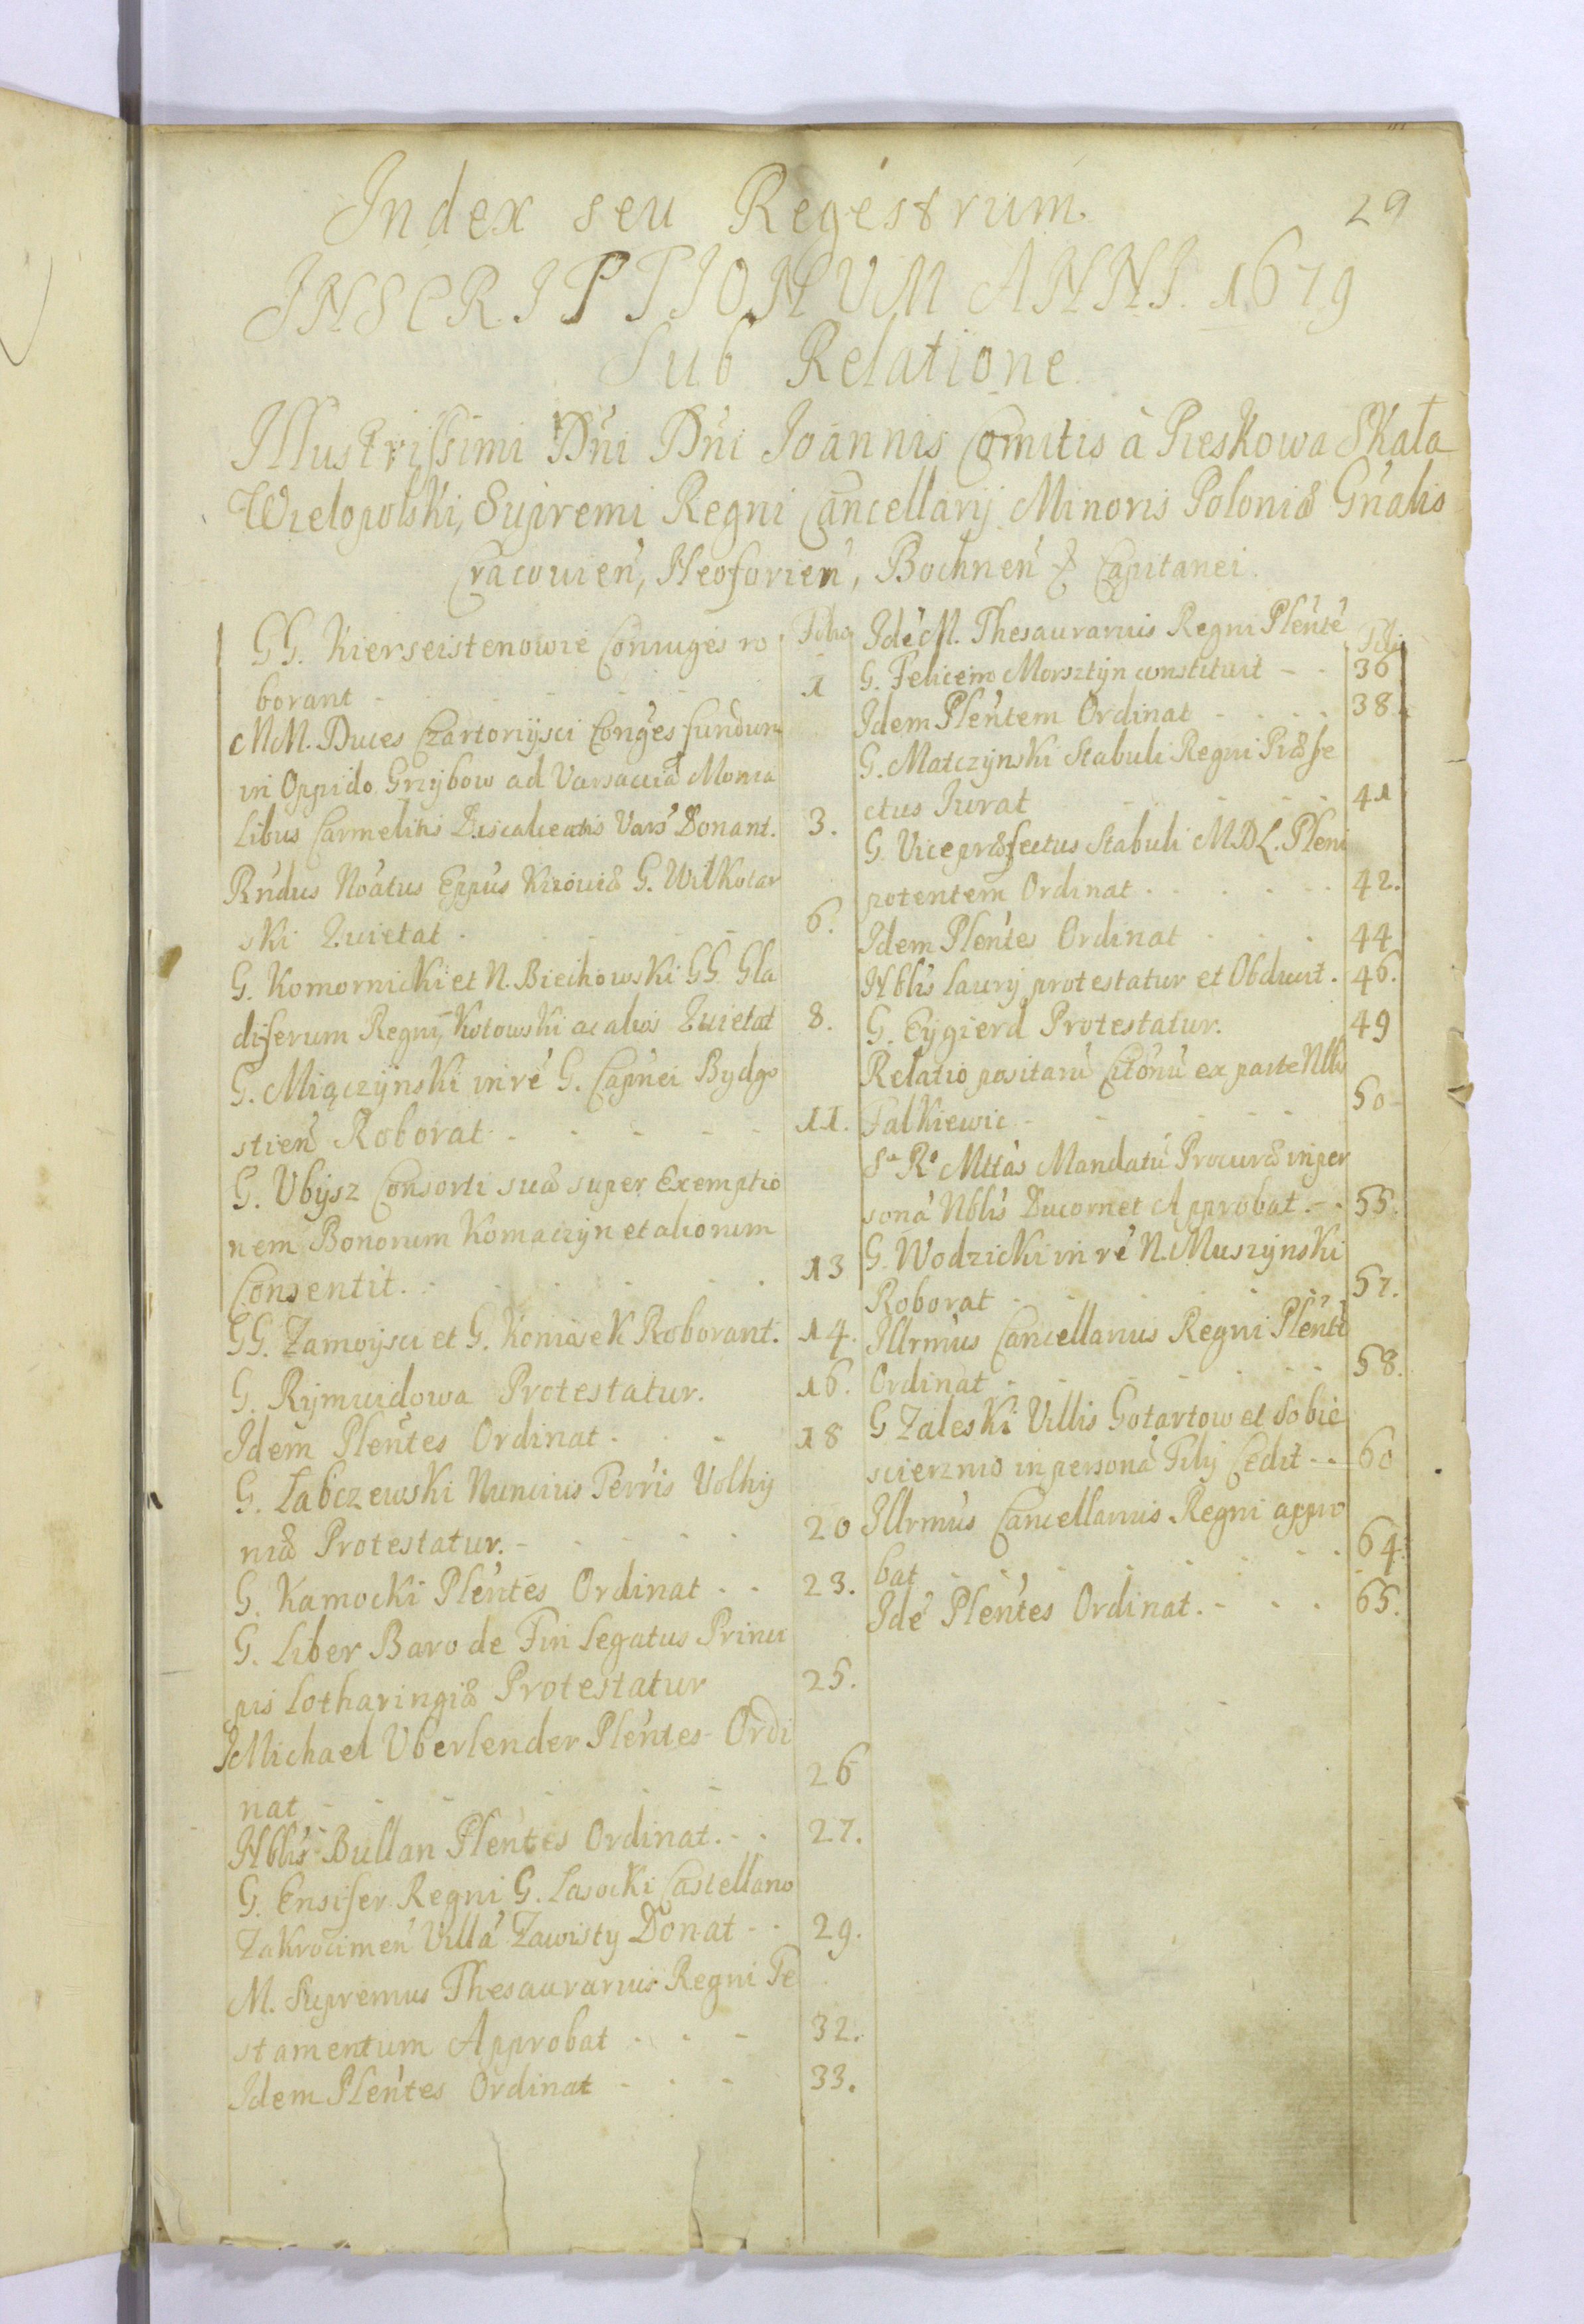 29
Index seu Regestrum
INSCRIPTIONUM ANNI 1679
Sub Relatione
Illustrissimi Dńi Dńi Joannis Comitis à Pieskowa Skała
Wielopolski, Supremi Regni Cancellarij Minoris Poloniæ Gńalis
Cracouień, Neoforień, Bochneń & Capitanei.
Folio
GG. Kierseistenowie Coniuges ro
borant - 1
MM. Duces Czartoryisci Coniges fundum
in Oppido Grzybow ad Varsauiã Monia
libus Carmelitis Discalceatis Vars Donant. 3.
Rńdus Noatus Eppus Kiiouiæ G. Wilkocar
ski Quietat - 6.
G. Komornicki et N. Biechowski GG Gla
diferum Regni, Kotowski ac alios Quietat 8.
G. Miączyński in rè G. Capnei Bydgo
stień Roborat - 11.
G. Ubysz Consorti suæ super Exemptio
nem Bonorum Komaczyn et aliorum
Consentit. - 13
GG. Zamoysci et G. Koniasek Roborant. 14.
G. Rymwidowa Protestatur. 16.
Idem Plentes Ordinat - 18
G. Łabczewski Nuncius Terris Volhy
niæ Protestatur. - 20
G. Kamocki Plentes Ordinat - - 23.
G. Liber Baro de Fin Legatus Princi
pis Lotharingiæ Protestatur 25.
Michael Uberlender Plentes Ordi
nat - 26
Nblis Bullan Plentes Ordinat. - 27.
G. Ensifer Regni G. Lasocki Castellano
Zakrocimeń Villa Zawisty Donat - - 29.
M. Supremus Thesaurarius Regni Te
stamentum Approbat - 32.
Idem Plentes Ordinat - 33.
Idè M. Thesaurarius Regni Plentè Folio
G. Felicem Morsztyn constituit - - 36
Idem Plentem Ordinat - 38.
G. Matczynski Stabuli Regni Præfe
ctus Jurat - 41
G. Vicepræfectus Stabuli M.D.L. Pleni
potentem Ordinat - 42.
Idem Plentes Ordinat - 44
Nblis Laury protestatur et Obducit. 46.
G. Eygierd Protestatur. 49
Relatio positarù Citonù ex parte Nblis
Falkiewic - 50
Sa Ra Mttas Mandatù Procuræ in per
sonà Nblis Ducornet Approbat. - - 55.
G. Wodzicki in rè N. Muszynski
Roborat - 57.
Illrmus Cancellarius Regni Plentè
Ordinat - 58.
G Zaleski Villis Gotartow et Sobie
scierznio in personà Filij Cedit - - 60
Illrmus Cancellarius Regni appro
bat - 64.
Idè Plentes Ordinat. - 65.